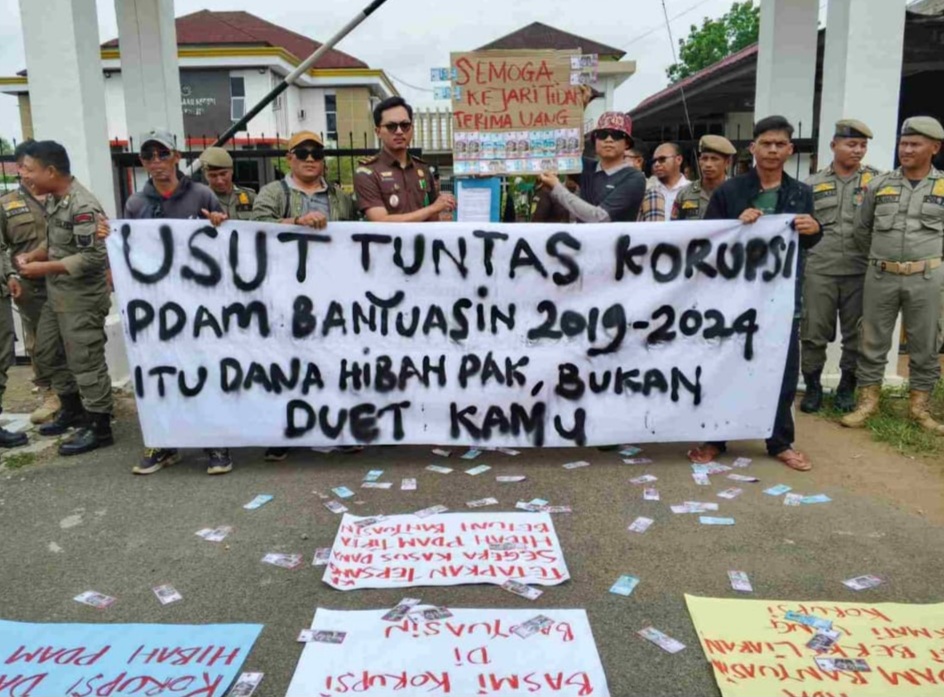 SEMOGA
KEJARI TIDAK
TERIMA UANG
USUT TUNTAS KORUPSI
PDAM BANYUASIN 2019-2024
ITU DANA HIBAH PAK, BUKAN
DUET KAMU
TETAPKAN TERSANG
SEGERA KASUS DANA
HIBAH PDAM TIRTA
BETUNI BANYUASIN
KORUPSI DA
HIBAH PDAM
BASMI KORUPSI
DI
BANYUASIN
BANYUASIN
MATI
KORUPSI